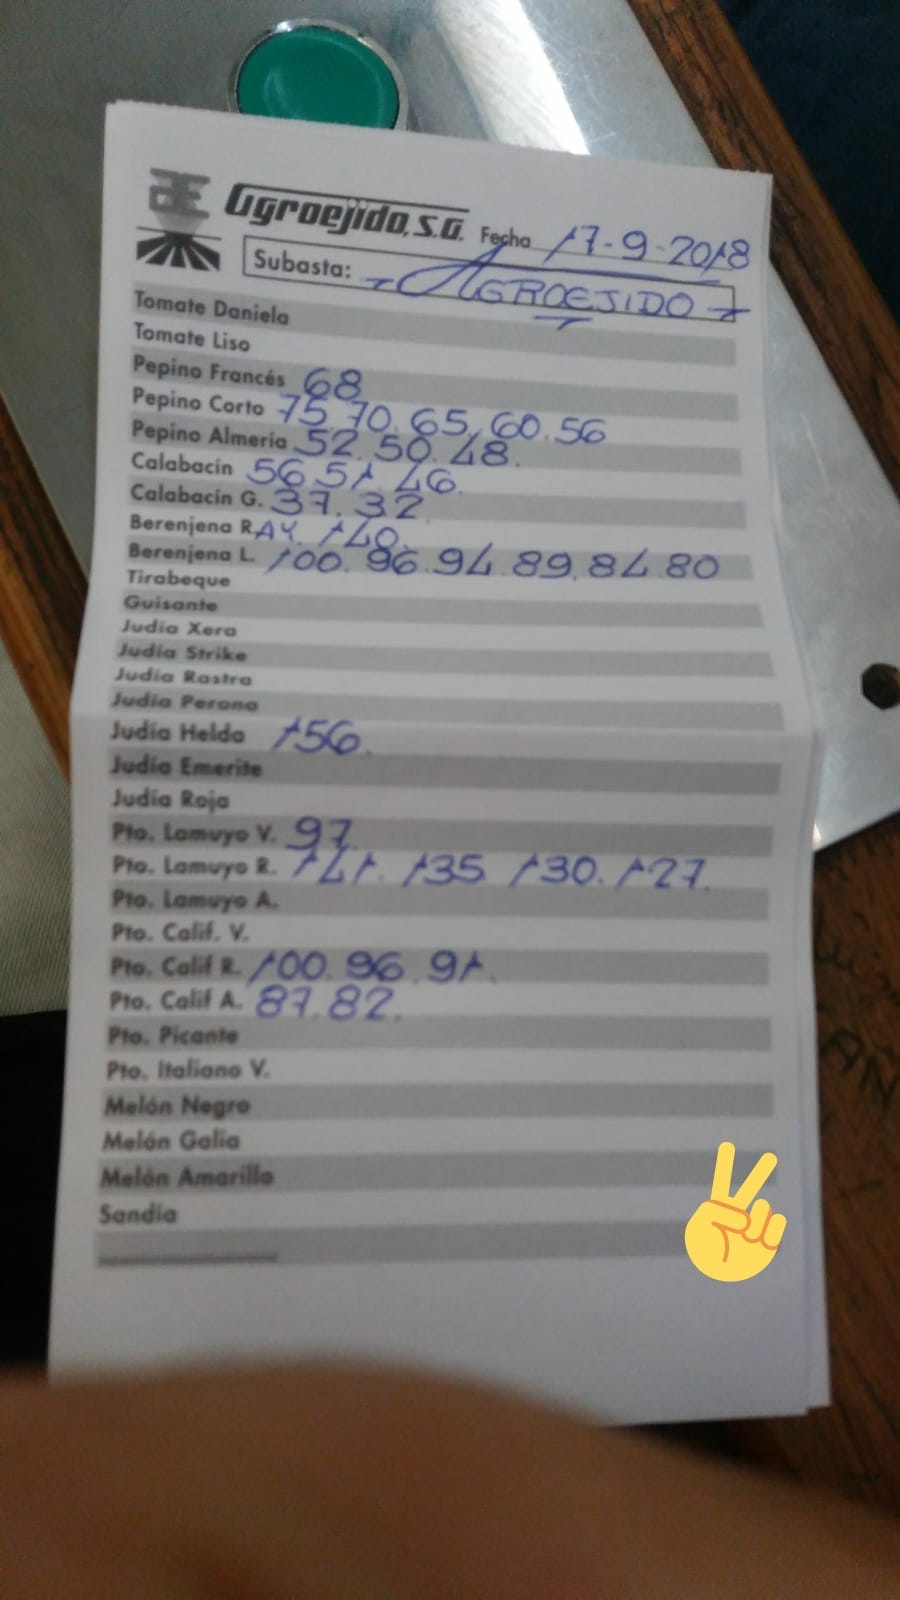 Agroejido, S.A. Fecha 17-9-2018
Subasta: AGROEJIDO
Tomate Daniela
Tomate Liso
Pepino Francés 68
Pepino Corto 75. 70. 65. 60. 56
Pepino Almería 52. 50. 48.
Calabacín 56 51. 46.
Calabacín G. 37. 32
Berenjena R.AY. 140.
Berenjena L. 100. 96. 94. 89. 84. 80
Tirabeque
Guisante
Judía Xera
Judía Strike
Judía Rastra
Judía Perona
Judía Helda 156.
Judía Emerite
Judía Roja
Pto. Lamuyo V. 97.
Pto. Lamuyo R. 141. 135. 130. 127.
Pto. Lamuyo A.
Pto. Calif. V.
Pto. Calif R. 100. 96. 91.
Pto. Calif A. 87. 82.
Pto. Picante
Pto. Italiano V.
Melón Negro
Melón Galia
Melón Amarillo
Sandía